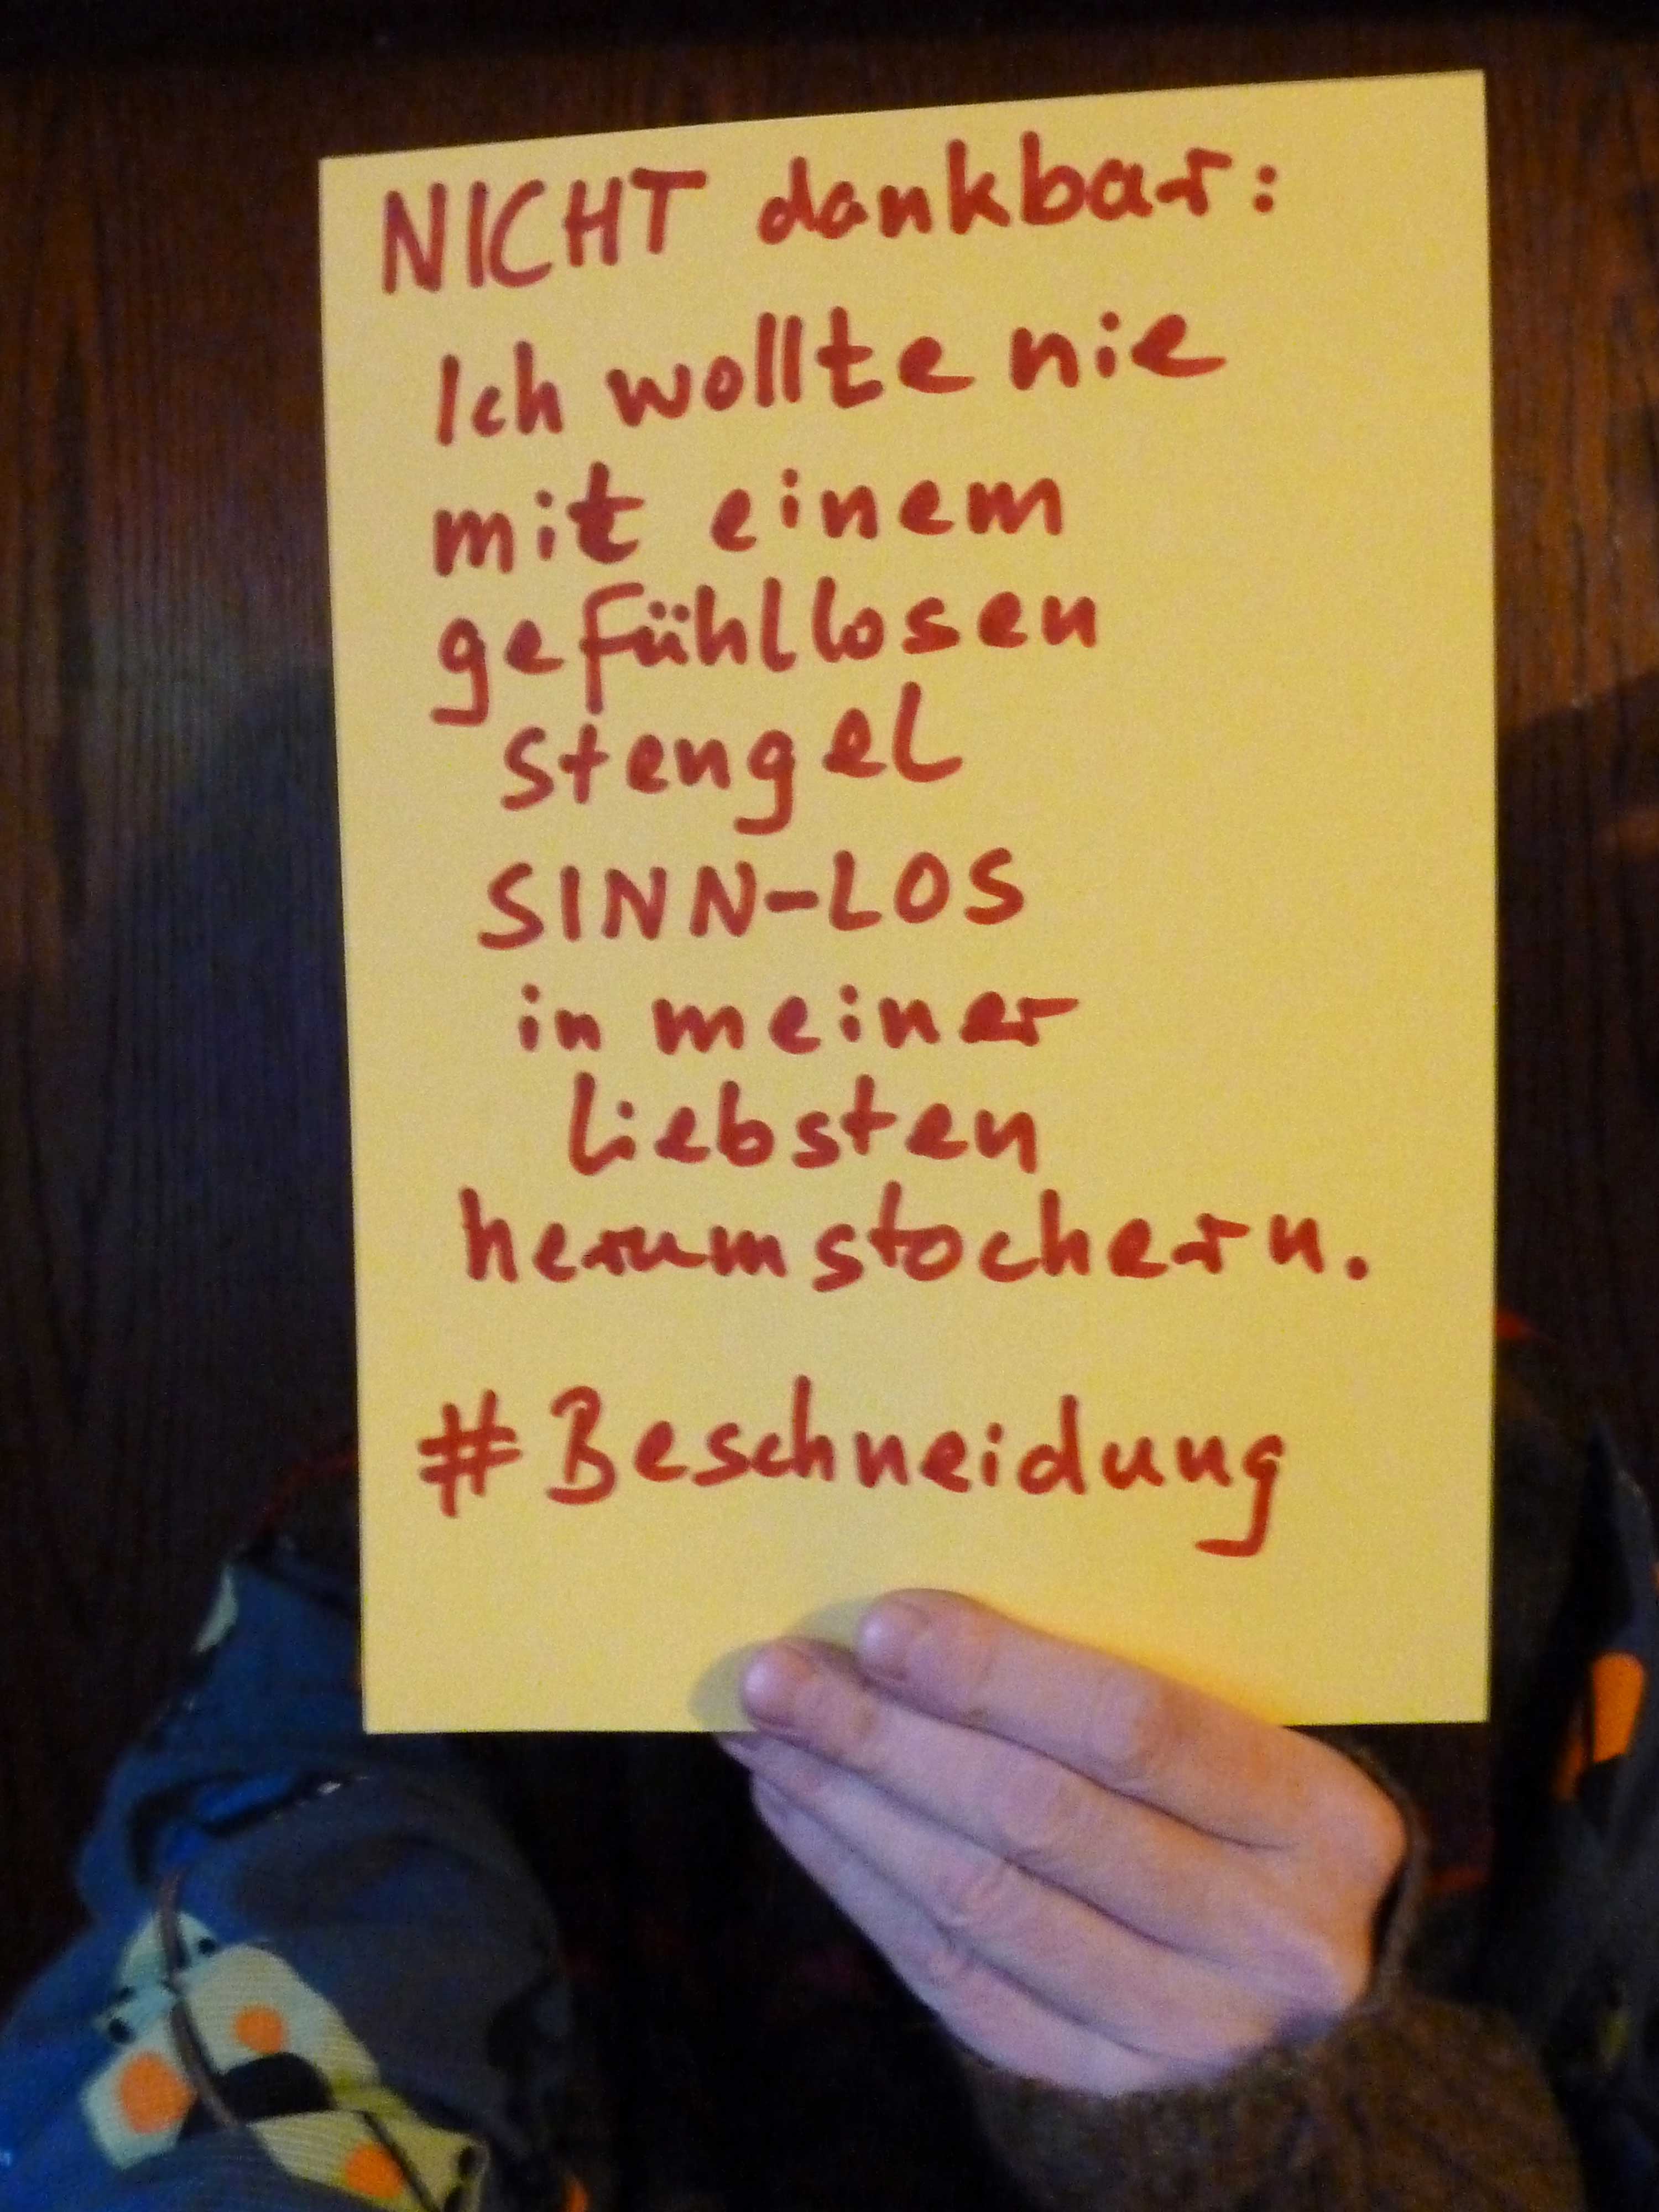 NICHT dankbar:
Ich wollte nie
mit einem
gefühllosen
stengel
SINN-LOS
in meiner
liebsten
herumstochern.
#Beschneidung